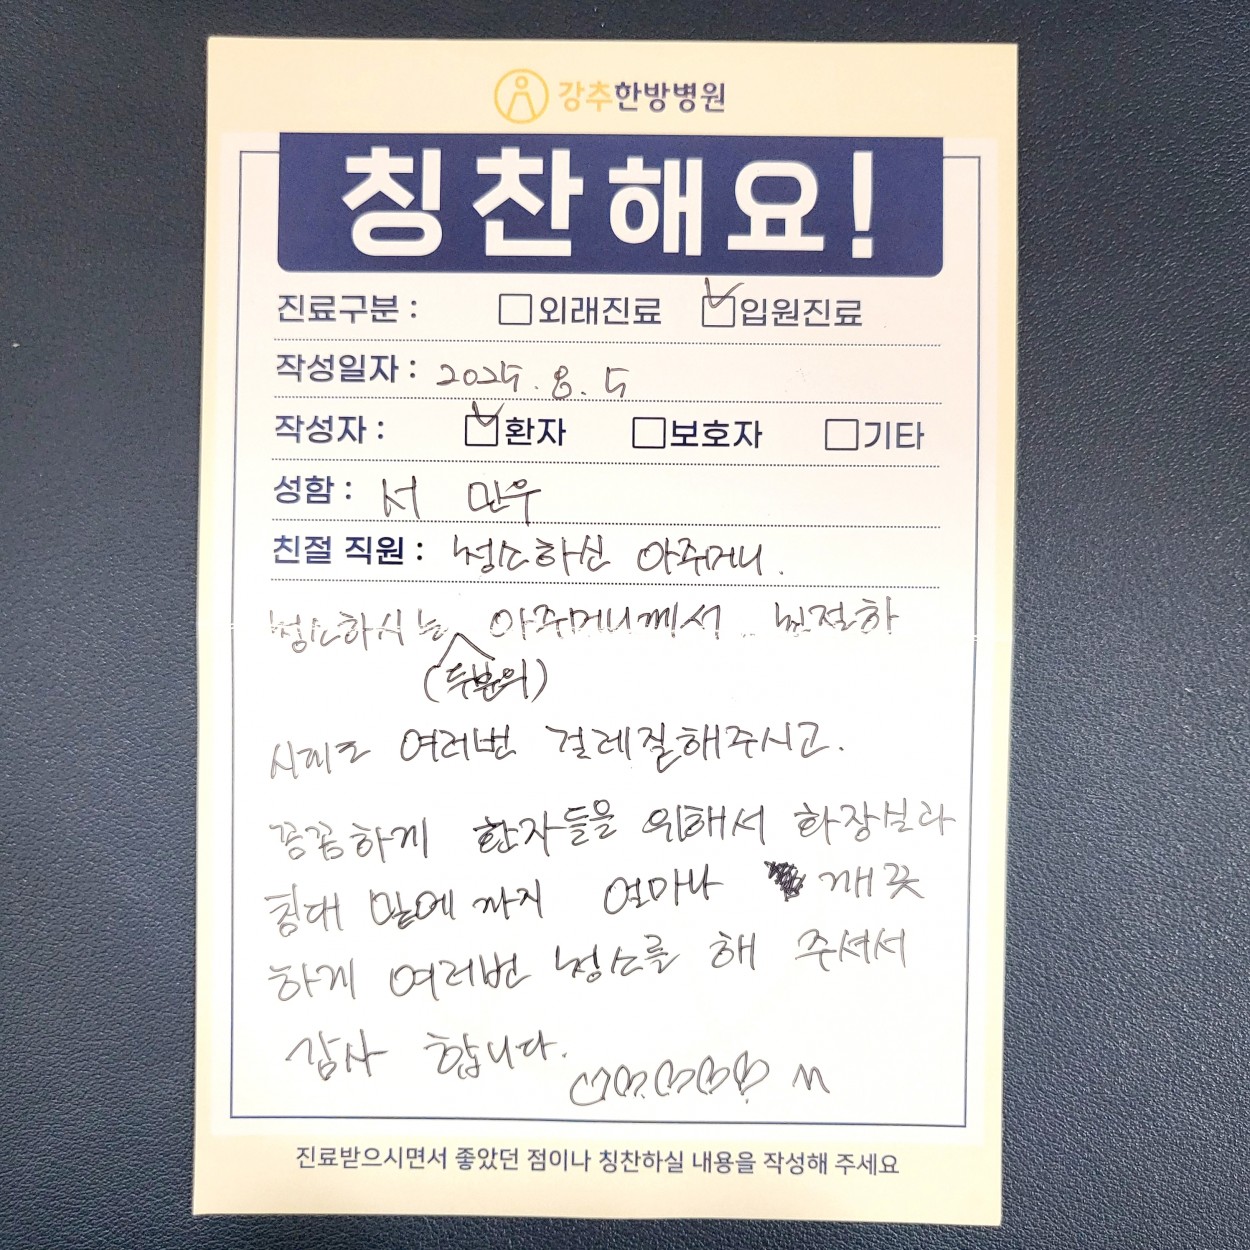 강추한방병원
칭찬해요!
진료구분 : 외래진료 입원진료
작성일자 : 2025. 8. 5
작성자 : 환자 보호자 기타
성함 : 서 만우
친절 직원 : 청소하신 아주머니.
청소하시는 아주머니께서.. 친절하
(두분의)
시고 여러번 걸레질해주시고.
꼼꼼하게 환자들을 위해서 화장실과
침대 밑에 까지 얼마나 깨끗
하게 여러번 청소를 해 주셔서
감사 합니다.
진료받으시면서 좋았던 점이나 칭찬하실 내용을 작성해 주세요